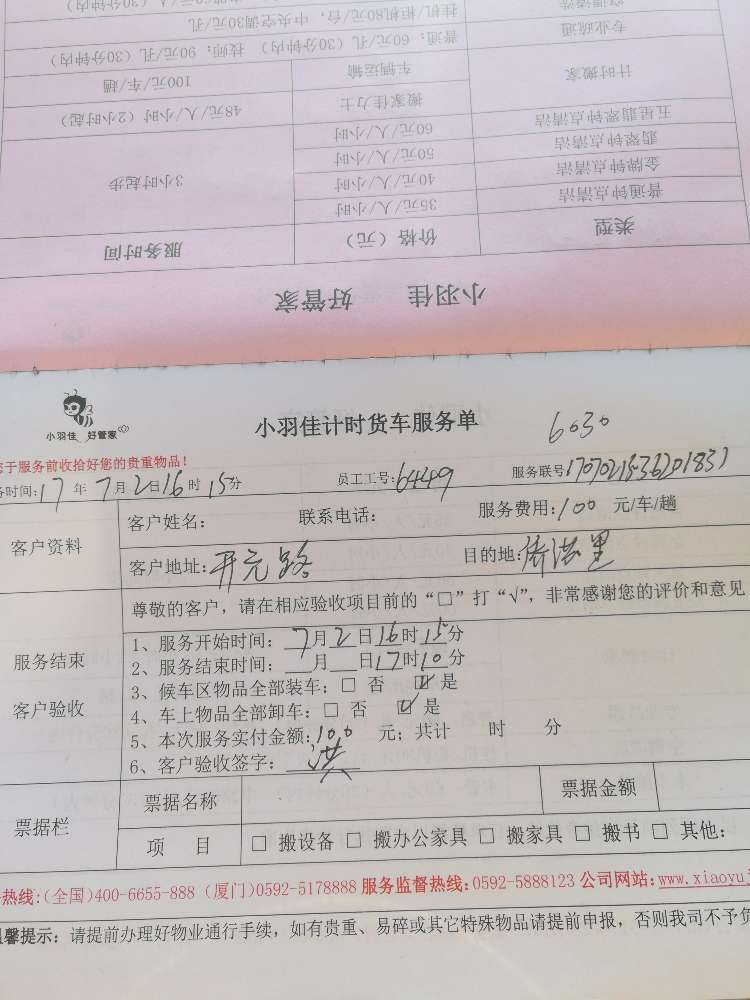 小羽佳 好管家
类型 价格（元） 服务时间
普通钟点清洁 35元/人/小时 3小时起步
金牌钟点清洁 40元/人/小时
翡翠钟点清洁 50元/人/小时
五星翡翠钟点清洁 60元/人/小时
计时搬家 搬家佳力士 48元/人/小时（2小时起）
车辆运输 100元/车/趟
专业疏通 普通：60元/孔（30分钟内） 技师：90元/孔（30分钟内）
挂机/柜机80元/台，中央空调30元/孔
小羽佳 好管家
小羽佳计时货车服务单 6030
于服务前收拾好您的贵重物品！
务时间:17年7月2日16时15分 员工工号:6449 服务联号170702153620183
客户资料 客户姓名： 联系电话： 服务费用:100 元/车/趟
客户地址:开元路 目的地:
尊敬的客户，请在相应验收项目前的“□”打“√”，非常感谢您的评价和意见
服务结束
客户验收
1、服务开始时间：7月2日16时15分
2、服务结束时间：___月___日17时10分
3、候车区物品全部装车：□ 否 ☑ 是
4、车上物品全部卸车：□ 否 ☑ 是
5、本次服务实付金额:100 元；共计 时 分
6、客户验收签字：洪
票据栏 票据名称 票据金额
项 目 □ 搬设备 □ 搬办公家具 □ 搬家具 □ 搬书 □ 其他：
热线:(全国)400-6655-888 (厦门)0592-5178888 服务监督热线:0592-5888123 公司网站:www.xiaoyu
温馨提示：请提前办理好物业通行手续，如有贵重、易碎或其它特殊物品请提前申报，否则我司不予负